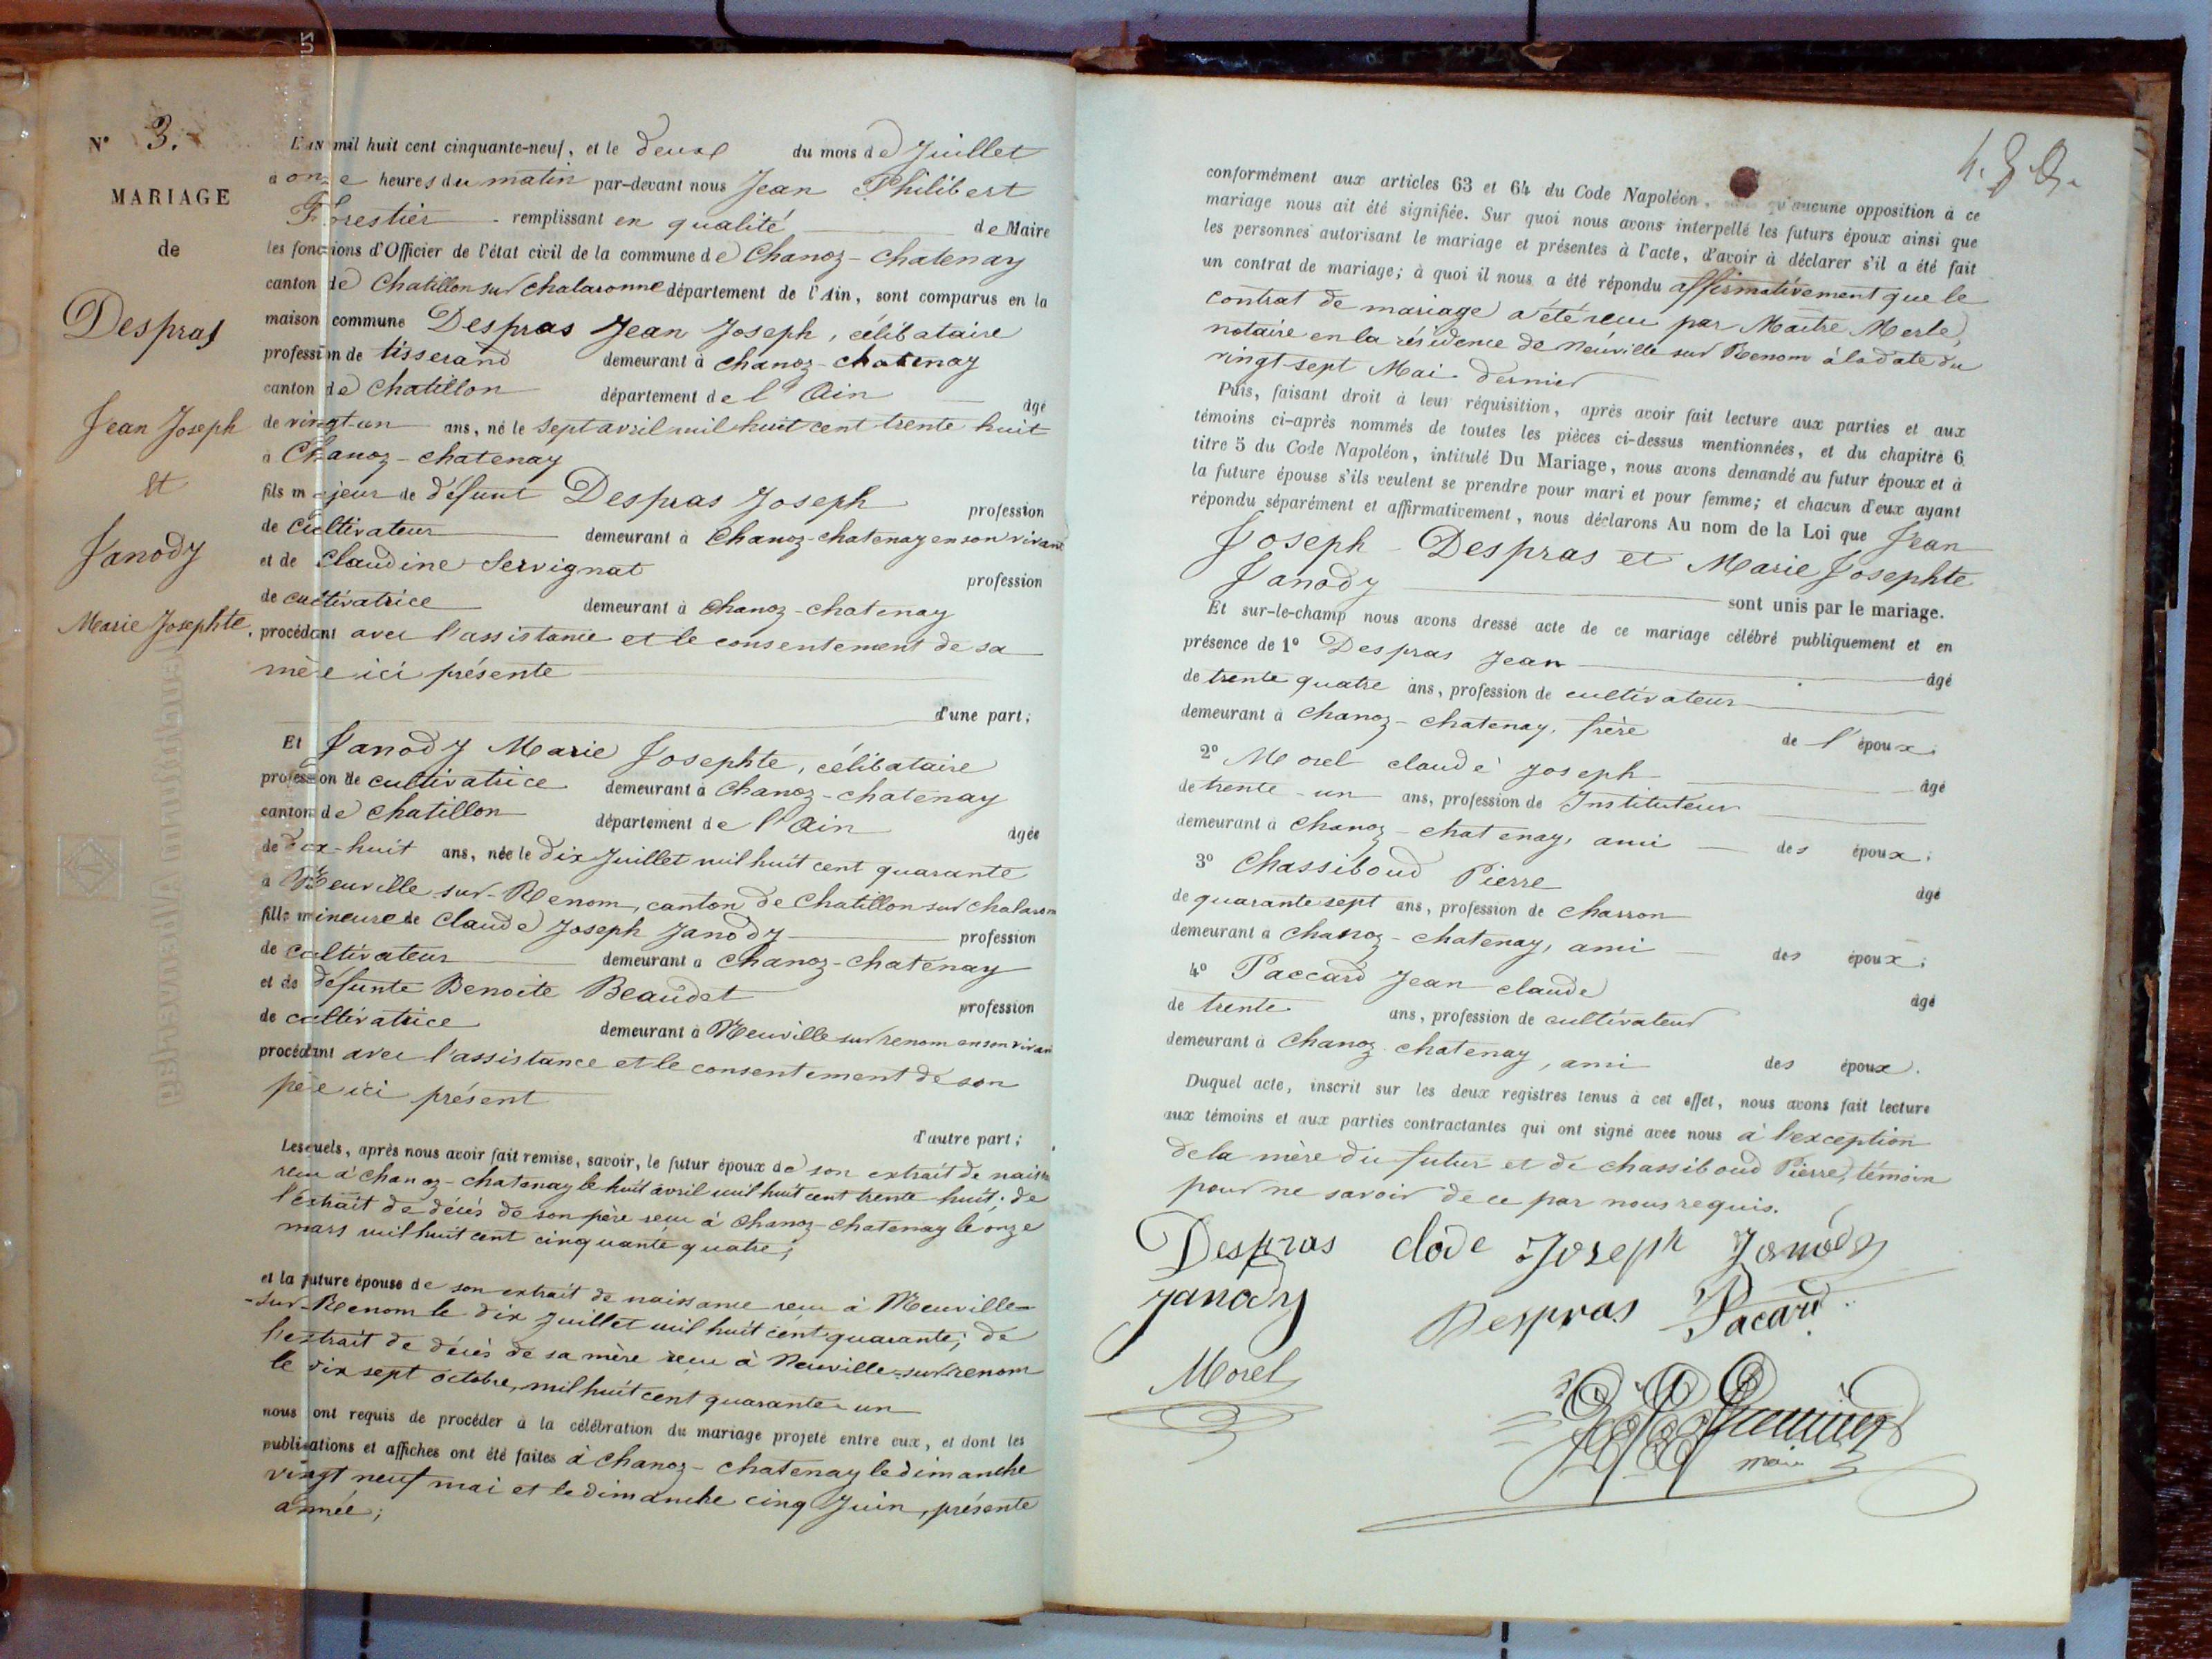 N° 3.
MARIAGE
de
Despras
Jean Joseph
et
Janody
Marie Josephte.
L'an mil huit cent cinquante-neuf, et le deux du mois de Juillet
à onze heures du matin par-devant nous Jean Philibert
Forestier remplissant en qualité de Maire
les fonctions d'Officier de l'état civil de la commune de Chanoz-Chatenay
canton de Chatillon sur Chalaronne département de l'Ain, sont comparus en la
maison commune Despras Jean Joseph, célibataire
profession de tisserand demeurant à Chanoz-chatenay
canton de Chatillon département de l'Ain âgé
de vingt-un ans, né le sept avril mil huit cent trente huit
à Chanoz-chatenay
fils majeur de défunt Despras Joseph profession
de cultivateur demeurant à Chanoz-chatenay en son vivant
et de Claudine Servignat profession
de cultivatrice demeurant à Chanoz-chatenay
procédant avec l'assistance et le consentement de sa
mère ici présente
d'une part;
Et Janody Marie Josephte, célibataire
profession de cultivatrice demeurant à Chanoz-chatenay
canton de Chatillon département de l'Ain âgée
de dix-huit ans, née le dix Juillet mil huit cent quarante
à Neuville-sur-Renom, canton de Chatillon sur Chalaronne
fille mineure de Claude Joseph Janody profession
de cultivateur demeurant à Chanoz-chatenay
et de défunte Benoite Beaudet profession
de cultivatrice demeurant à Neuville sur renom en son vivant
procédant avec l'assistance et le consentement de son
père ici présent
d'autre part;
Lesquels, après nous avoir fait remise, savoir, le futur époux de son extrait de naiss
reçu à Chanoz-chatenay le huit avril mil huit cent trente-huit; de
l'extrait de décès de son père reçu à Chanoz-chatenay le onze
mars mil huit cent cinquante quatre;
et la future épouse de son extrait de naissance reçu à Neuville-
-sur-Renom le dix Juillet mil huit cent quarante; de
l'extrait de décès de sa mère reçu à Neuville-sur-renom
le dix sept octobre, mil huit cent quarante un
nous ont requis de procéder à la célébration du mariage projeté entre eux, et dont les
publications et affiches ont été faites à Chanoz-chatenay le dimanche
vingt neuf mai et le dimanche cinq Juin, présente
année;
conformément aux articles 63 et 64 du Code Napoléon, sans qu'aucune opposition à ce
mariage nous ait été signifiée. Sur quoi nous avons interpellé les futurs époux ainsi que
les personnes autorisant le mariage et présentes à l'acte, d'avoir à déclarer s'il a été fait
un contrat de mariage; à quoi il nous a été répondu affirmativement que le
contrat de mariage a été reçu par Maitre Merle,
notaire en la résidence de Neuville sur Renom à la date du
vingt sept Mai dernier
Puis, faisant droit à leur réquisition, après avoir fait lecture aux parties et aux
témoins ci-après nommés de toutes les pièces ci-dessus mentionnées, et du chapitre 6
titre 5 du Code Napoléon, intitulé Du Mariage, nous avons demandé au futur époux et à
la future épouse s'ils veulent se prendre pour mari et pour femme; et chacun d'eux ayant
répondu séparément et affirmativement, nous déclarons Au nom de la Loi que Jean
Joseph Despras et Marie Josephte
Janody sont unis par le mariage.
Et sur-le-champ nous avons dressé acte de ce mariage célébré publiquement et en
présence de 1° Despras Jean âgé
de trente quatre ans, profession de cultivateur
demeurant à Chanoz-chatenay, frère de l'époux;
2° Morel claude joseph âgé
de trente-un ans, profession de Instituteur
demeurant à Chanoz-chatenay, ami des époux;
3° Chassiboud Pierre âgé
de quarante sept ans, profession de charron
demeurant à Chanoz-chatenay, ami des époux;
4° Paccard Jean claude âgé
de trente ans, profession de cultivateur
demeurant à Chanoz chatenay, ami des époux.
Duquel acte, inscrit sur les deux registres tenus à cet effet, nous avons fait lecture
aux témoins et aux parties contractantes qui ont signé avec nous à l'exception
de la mère du futur et de chassiboud Pierre, témoin
pour ne savoir de ce par nous requis.
Despras clôde Joseph Janody
Janody Despras Pacard
Morel
maire